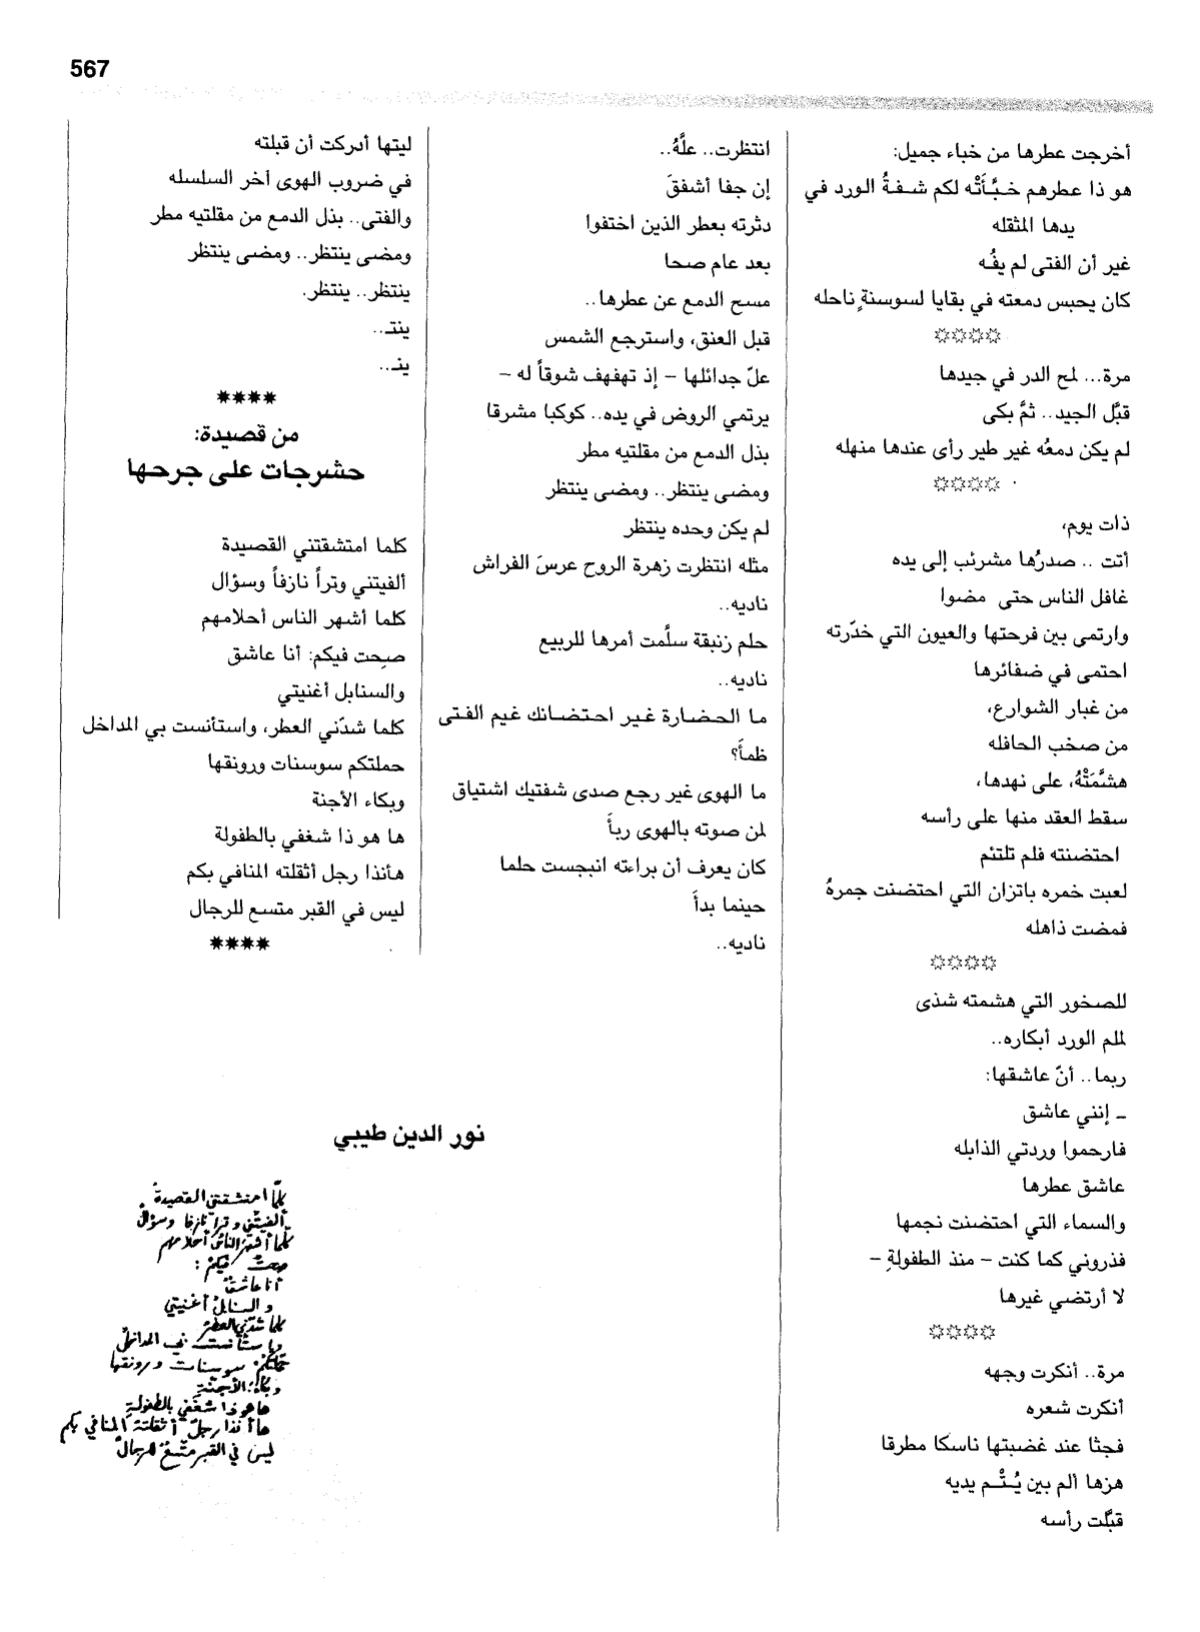 567
أخرجت عطرها من خباء جميل:
هو ذا عطرهم خـبَّـأتْه لكم شـفـةُ الـورد في
يدها المثقله
غير أن الفتى لم يفُه
كان يحبس دمعته في بقايا لسوسنةٍ ناحله
۞۞۞۞
مرة... لمح الدر في جيدها
قبَّل الجيد.. ثمَّ بكى
لم يكن دمعُه غير طير رأى عندها منهله
۞۞۞۞
ذات يوم،
أتت .. صدرُها مشرئب إلى يده
غافل الناس حتى مضوا
وارتمى بين فرحتها والعيون التي خدّرته
احتمى في ضفائرها
من غبار الشوارع،
من صخب الحافله
هشَّمَتْهُ، على نهدها،
سقط العقد منها على رأسه
احتضنته فلم تلتئم
لعبت خمره باتزان التي احتضنت جمرهُ
فمضت ذاهله
۞۞۞۞
للصخور التي هشمته شذى
لملم الورد أبكاره..
ربما.. أنّ عاشقها:
ـ إنني عاشق
فارحموا وردتي الذابله
عاشق عطرها
والسماء التي احتضنت نجمها
فذروني كما كنت – منذ الطفولةِ –
لا أرتضي غيرها
۞۞۞۞
مرة.. أنكرت وجهه
أنكرت شعره
فجثا عند غضبتها ناسكا مطرقا
هزها ألم بين يُـتْـم يديه
قبَّلت رأسه
انتظرت.. علَّهُ..
إن جفا أشفقَ
دثرته بعطر الذين اختفوا
بعد عام صحا
مسح الدمع عن عطرها..
قبل العنق، واسترجع الشمس
علّ جدائلها – إذ تهفهف شوقاً له –
يرتمي الروض في يده.. كوكبا مشرقا
بذل الدمع من مقلتيه مطر
ومضى ينتظر.. ومضى ينتظر
لم يكن وحده ينتظر
مثله انتظرت زهرة الروح عرسَ الفراش
ناديه..
حلم زنبقة سلَّمت أمرها للربيع
ناديه..
ما الحـضـارة غـيـر احـتـضـانك غيم الفـتى
ظمأً؟
ما الهوى غير رجع صدى شفتيك اشتياق
لمن صوته بالهوى ربأَ
كان يعرف أن براءته انبجست حلما
حينما بدأَ
ناديه..
ليتها أدركت أن قبلته
في ضروب الهوى آخر السلسله
والفتى.. بذل الدمع من مقلتيه مطر
ومضى ينتظر.. ومضى ينتظر
ينتظر.. ينتظر.
ينتـ..
ينـ..
****
من قصيدة:
حشرجات على جرحها
كلما امتشقتني القصيدة
ألفيتني وتراً نازفاً وسؤال
كلما أشهر الناس أحلامهم
صحت فيكم: أنا عاشق
والسنابل أغنيتي
كلما شدّني العطر، واستأنست بي المداخل
حملتكم سوسنات ورونقها
وبكاء الأجنة
ها هو ذا شغفي بالطفولة
هأنذا رجل أثقلته المنافي بكم
ليس في القبر متسع للرجال
****
نور الدين طيبي
كلّما امتشقتني القصيدةُ
ألفيتُني وترا نازفا وسؤالْ
كلّما أشهرَ الناسُ أحلامهم
صحتُ فيكمْ :
أنا عاشقٌ
و السنابلُ أغنيتي
كلما شدّني العطرُ
واستأنست بي المداخلُ
حملتكمْ سوسنات ورونقها
وبكاءَ الأجنّةِ
ها هو ذا شغفي بالطفولةِ
ها أنذا رجلٌ أثقلتهُ المنافي بكم
ليس في القبر متّسعٌ للرجالْ